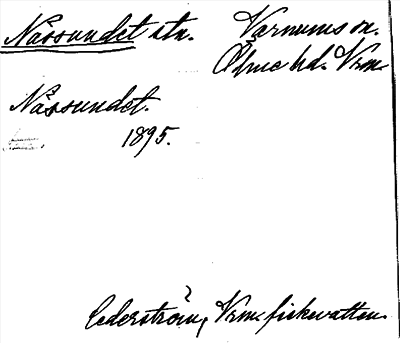 Nässundet stn. Varnums sn.
Ölme hd. Vrm.
Nässundet.
1895.
Cederström, Vrm. fiskvatten.